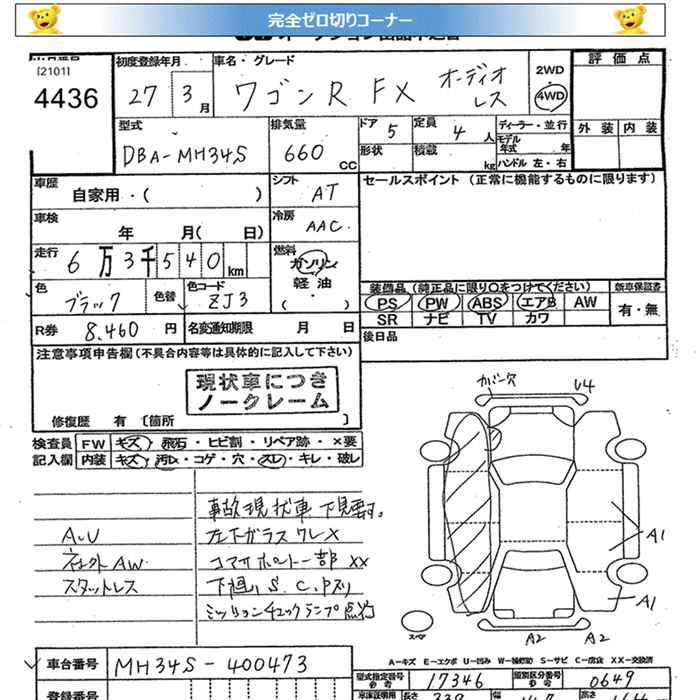 完全ゼロ切りコーナー
[2101]
4436
初度登録年月
27 3月
車名・グレード
ワゴンR FX オーディオレス
2WD
4WD
評価点
外装 内装
型式
DBA-MH34S
排気量
660 CC
ドア 5
定員 4人
形状
積載 kg
ディーラー・並行
モデル年式 年
ハンドル 左・右
車歴
自家用・( )
シフト AT
車検
年 月( 日)
冷房 AAC
走行
6万3千540km
燃料
ガソリン
軽油
( ・ )
セールスポイント (正常に機能するものに限ります)
色
ブラック
色替
色コード
ZJ3
装備品(純正品に限り○をつけてください)
PS PW ABS エアB AW
SR ナビ TV カワ
新車保証書
有・無
R券 8,460円
名変通知期限 月 日
後日品
注意事項申告欄(不具合内容等は具体的に記入して下さい)
現状車につき
ノークレーム
修復歴 有 [箇所 ]
検査員 FW キズ・飛石・ヒビ割・リペア跡・×要
記入欄 内装 キズ・汚レ・コゲ・穴・スレ・キレ・破レ
カバー穴
U4
事故現状車 下見要す。
左下ガラスワレX
下廻りS.C.Pズリ
ミッションチェックランプ点灯
スタットレス
A1
A1
A2
A2
スペア
A-キズ E-エクボ U-凹み W-補修跡 S-サビ C-腐食 XX-交換済
車台番号 MH34S-400473
型式指定番号 17346
類別区分番号 0649
登録番号